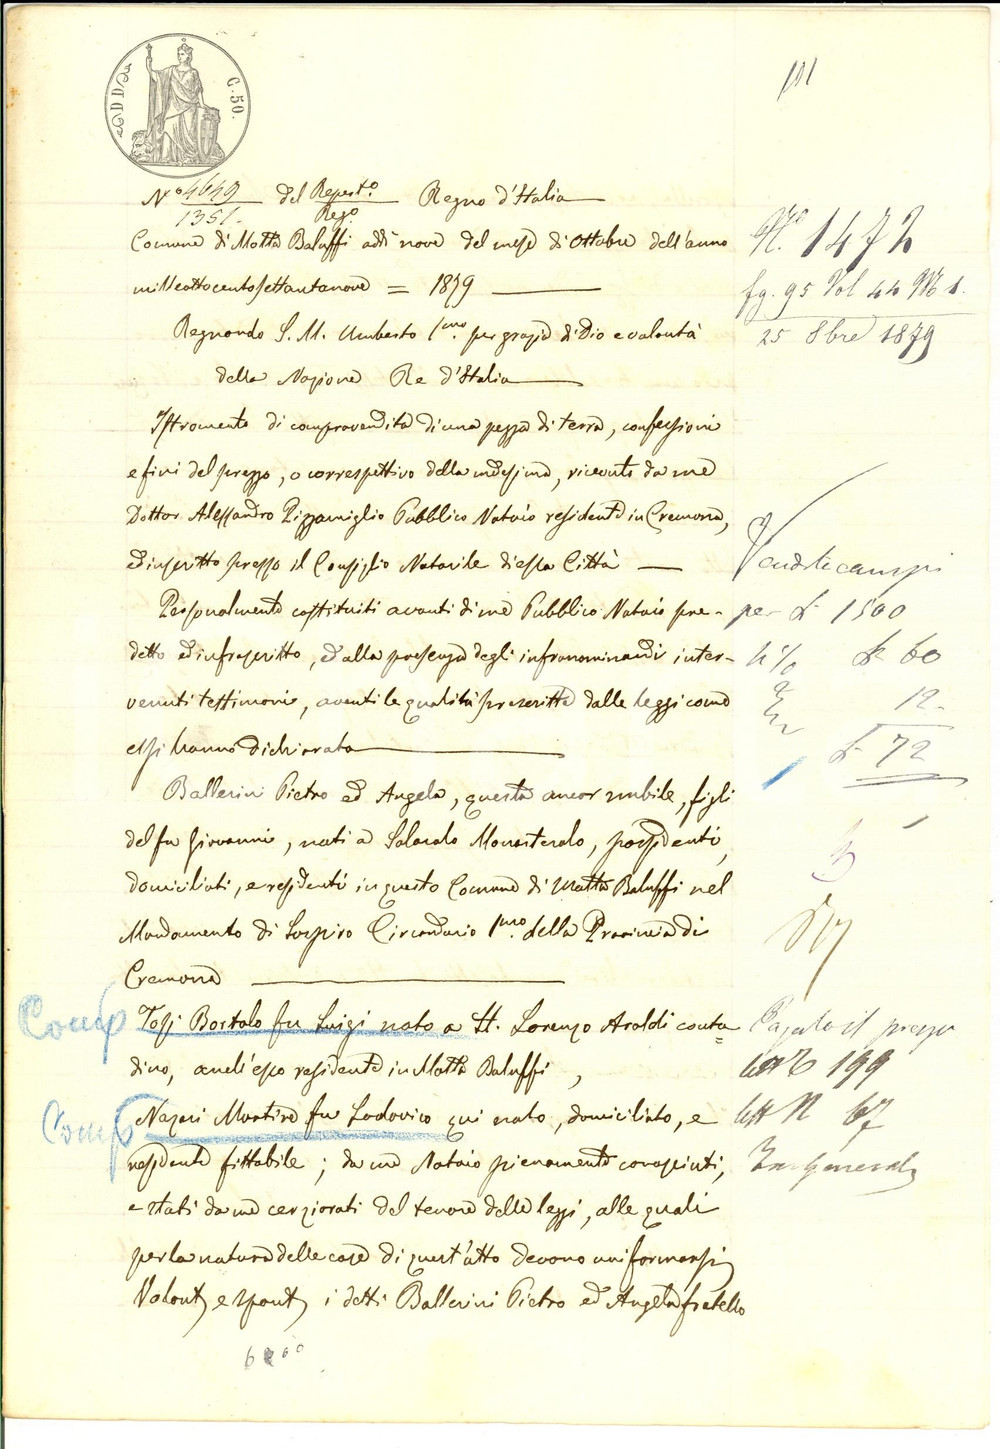 C. 50.
N.o 4649 del Repert.o Regno d'Italia
1351. Reg.o
Comune di Motta Baluffi addì nove del mese di Ottobre dell'anno
milleottocentosettantanove = 1879
Regnando S. M. Umberto 1mo per grazia di Dio e volontà
della Nazione Re d'Italia
Istromento di compravendita di una pezza di terra, confessioni
e fini del prezzo, o correspettivo della medesima, ricevuto da me
Dottor Alessandro Pizzamiglio Pubblico Notaio residente in Cremona,
ed inscritto presso il Consiglio Notarile di essa Città
Personalmente costituiti avanti di me Pubblico Notaio pre-
detto ed infrascritto, ed alla presenza degli infranominandi inter-
venuti testimonii, aventi le qualità prescritte dalle leggi come
essi hanno dichiarato
Ballerini Pietro ed Angela, questa ancor nubile, figli
del fu Giovanni, nati a Solarolo Monasterolo, possidenti,
domiciliati, e residenti in questo Comune di Motta Baluffi nel
Mandamento di Sospiro Circondario 1mo della Provincia di
Cremona
Tosi Bortolo fu Luigi nato a S. Lorenzo Aroldi conta=
dino, anch'esso residente in Motta Baluffi,
Nazari Martino fu Lodovico qui nato, domiciliato, e
residente fittabile; da me Notaio pienamente conosciuti,
e stati da me cerziorati del tenore delle leggi, alle quali
per la natura delle cose di quest'atto devono uniformarsi
Volont. e spont. i detti Ballerini Pietro ed Angela fratello
N.o 1472
fg. 95 Vol 44 M 1.
25 8bre 1879
Vendite campi
per £ 1500
4 % £ 60
12.
£ 72
Pagato il prezzo
199
67
Comp
Comp